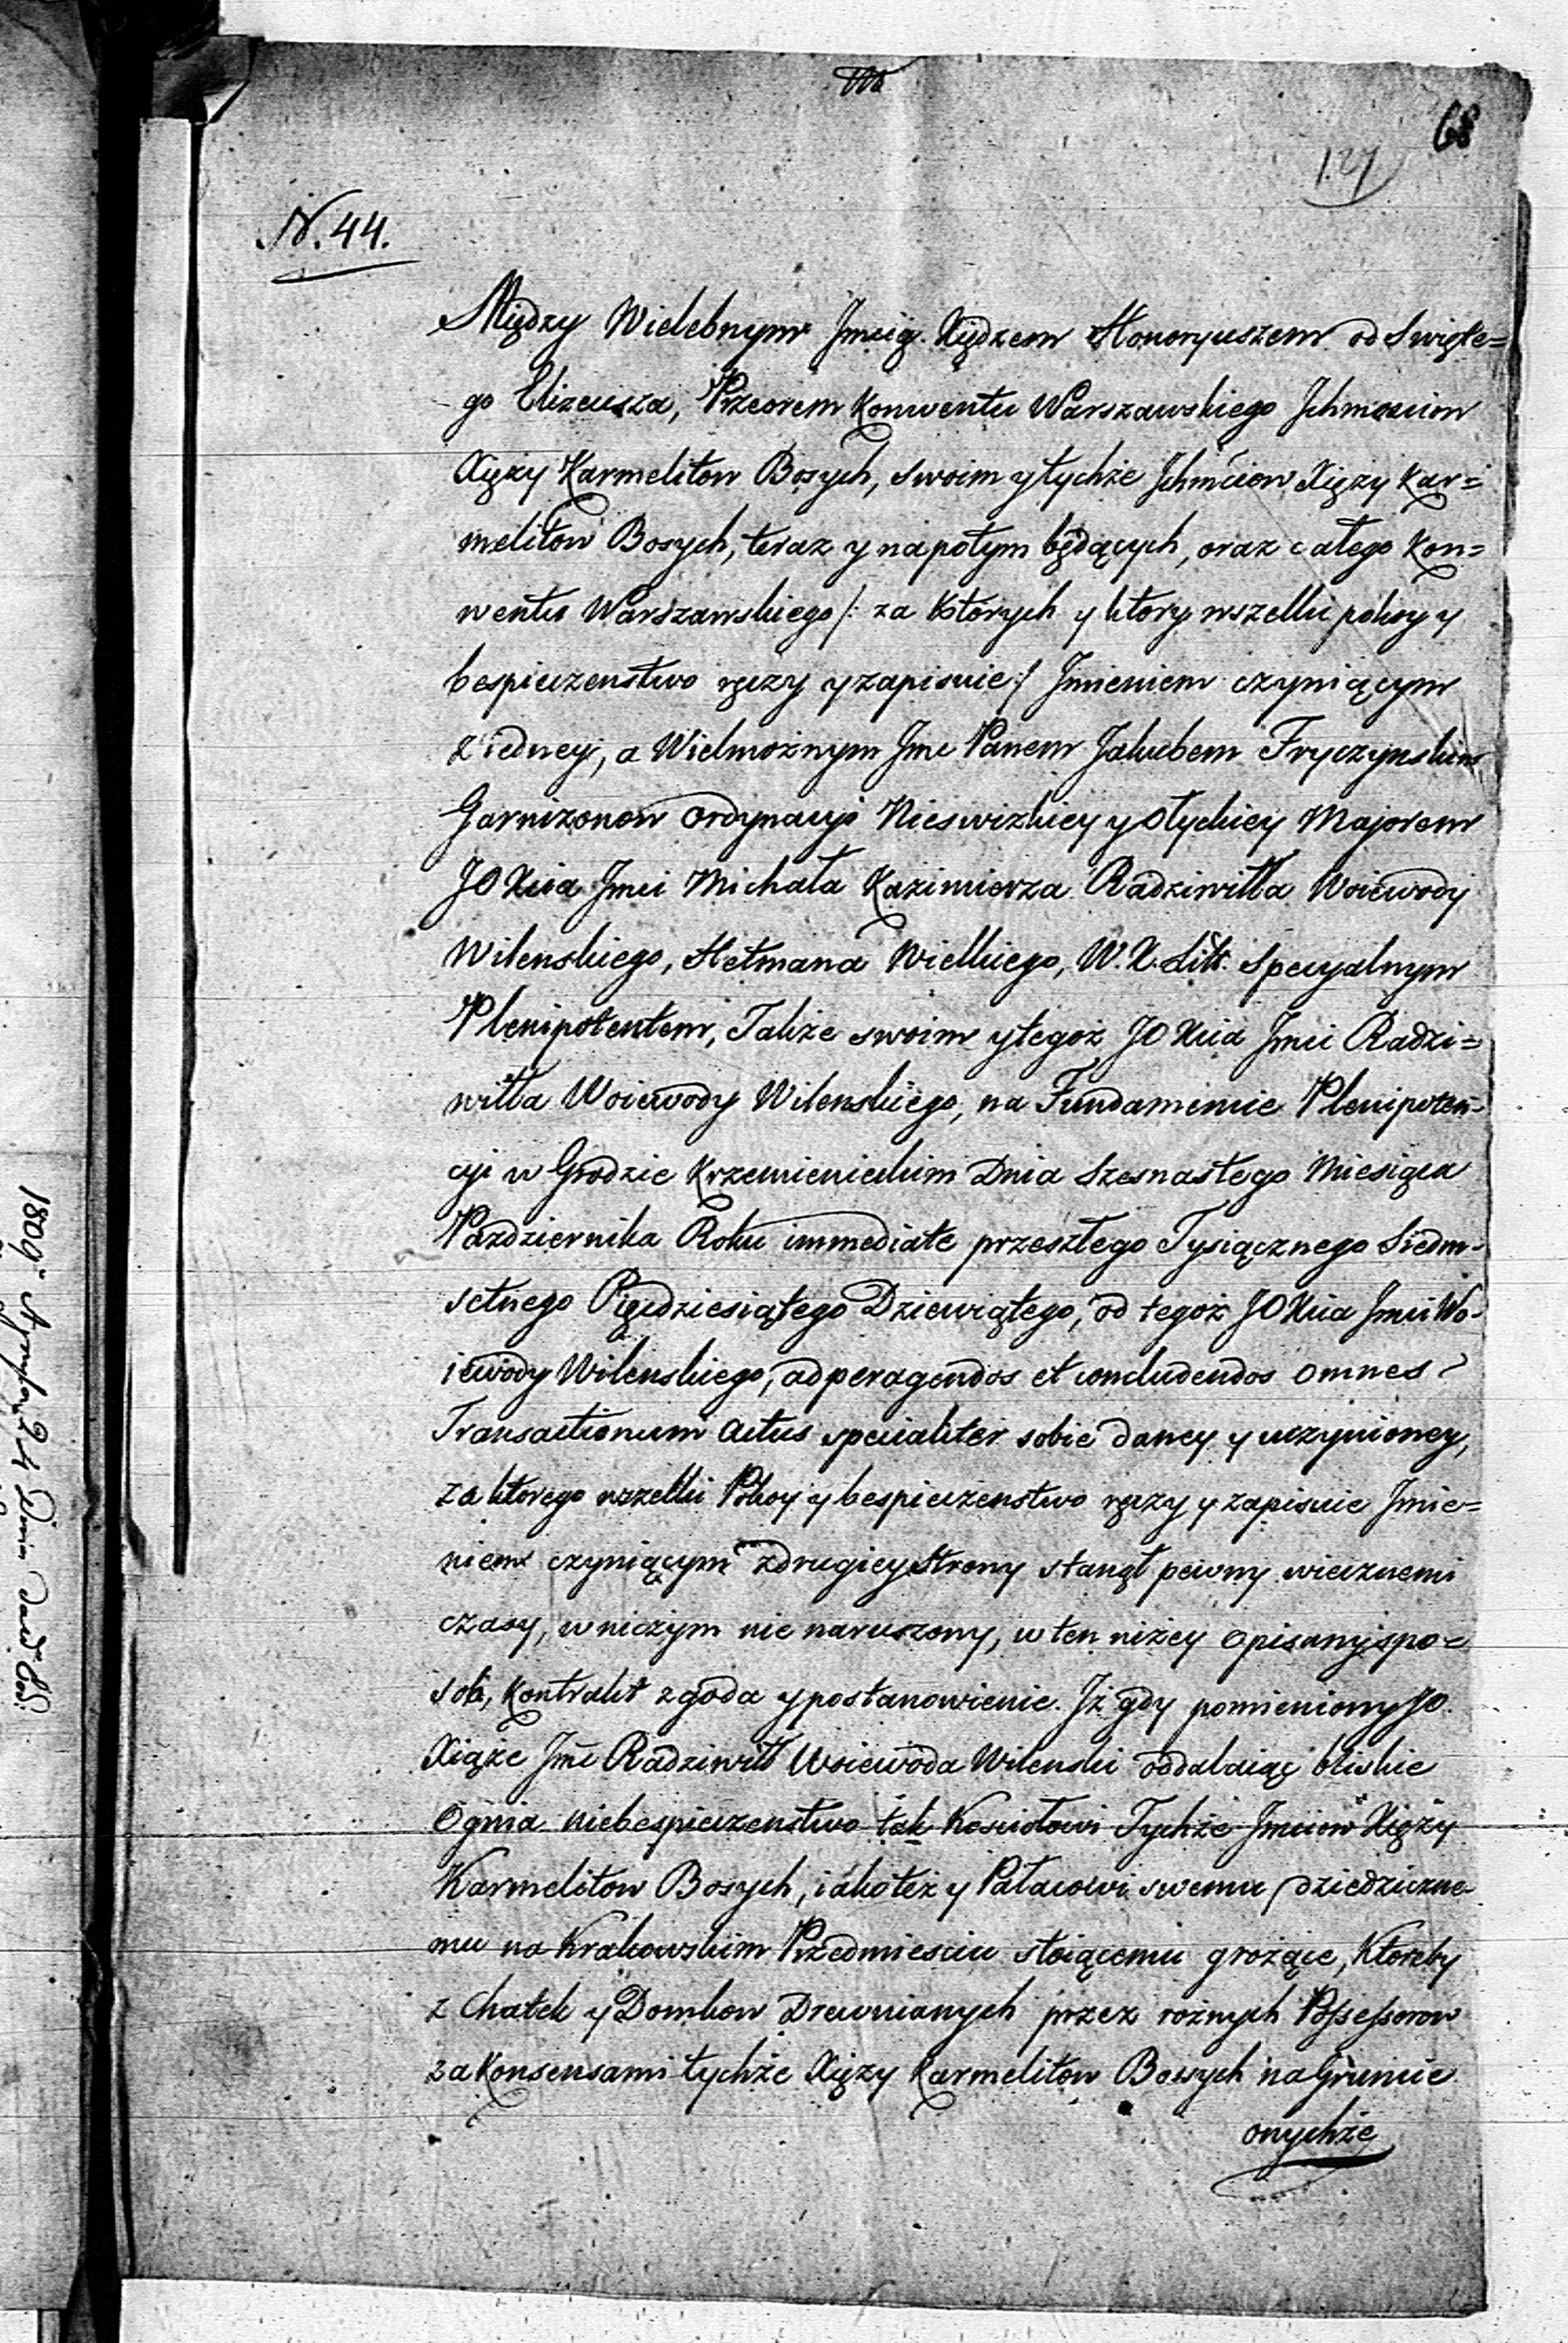 68
127
N. 44.
Między Wielebnym Jmcią Xiędzem Honoryuszem od Swięte=
go Elizeusza, Przeorem Konwentu Warszawskiego Jchmosciow
Xięzy Karmelitow Bosych, swoim y tychże Jchmciow Xięzy Kar=
melitow Bosych, teraz y napotym będących, oraz całego Kon=
wentu Warszawskiego /: za których y który wszelki pokoy y
bespieczenstwo ręczy y zapisuie :/ Jmieniem czyniącym
z iedney, a Wielmożnym Jmc Panem Jakubem Fryczynskim
Garnizonow Ordynacyi Nieswizkiey y Ołyckiey Majorem
JO Xcia Jmci Michała Kazimierza Radziwiłła Woiewody
Wilenskiego, Hetmana Wielkiego, W. X. Litt. Specyalnym
Plenipotentem, Także swoim y tegoż JO Xcia Jmci Radzi=
wiłła Woiewody Wilenskiego, na Fundamencie Plenipoten-
cyi w Grodzie Krzemienieckim Dnia Szesnastego Miesiąca
Pazdziernika Roku immediate przeszłego Tysiącznego Siedm-
setnego Pięcdziesiątego Dziewiątego, od tegoż JO Xcia Jmci Wo-
iewody Wilenskiego, ad peragendos et concludendos omnes
Transactionum Actus specialiter sobie daney y uczynioney,
za ktorego wszelki Pokoy y bespieczenstwo ręczy y zapisuie Jmie=
niem czyniącym z drugiey strony stanął pewny wiecznemi
czasy, w niczym nie naruszony, w ten niżey opisany spo=
sob, Kontrakt zgoda y postanowienie. Jż gdy pomieniony JO.
Xiąże Jmc Radziwiłł Woiewoda Wilenski oddalaiąc bliskie
Ognia niebespieczenstwo tak Kosciołowi Tychże Jmciow Xięży
Karmelitow Bosych, iako też y Pałacowi swemu dziedziczne-
mu na Krakowskim Przedmiesciu stoiącemu grożące, ktoreby
z Chatek y Domkow Drewnianych przez rożnych Possessorow
za Konsensami tychże Xięzy Karmelitow Bosych na Gruncie
onychże